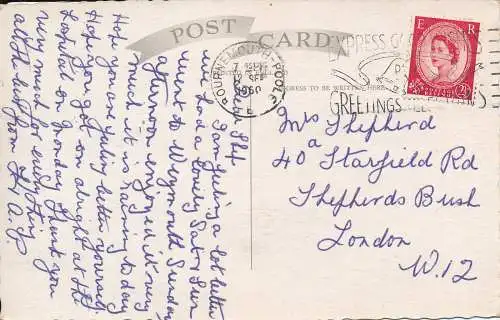 POST CARD
BOURNEMOUTH-POOLE
SEP
1960
EXPRESS
GREETINGS
E R
ADDRESS TO BE WRITTEN HERE
Mrs Shepherd
40a Starfield Rd
Shepherds Bush
London
W.12
I am feeling a lot better
we had a lovely Sat & Sun
went to Weymouth Sunday
afternoon enjoyed it very
much it is raining to day
Hope you are feeling better yourself.
Hope you got on alright at the
Hospital on Monday Thank you
very much for every thing
all the best from